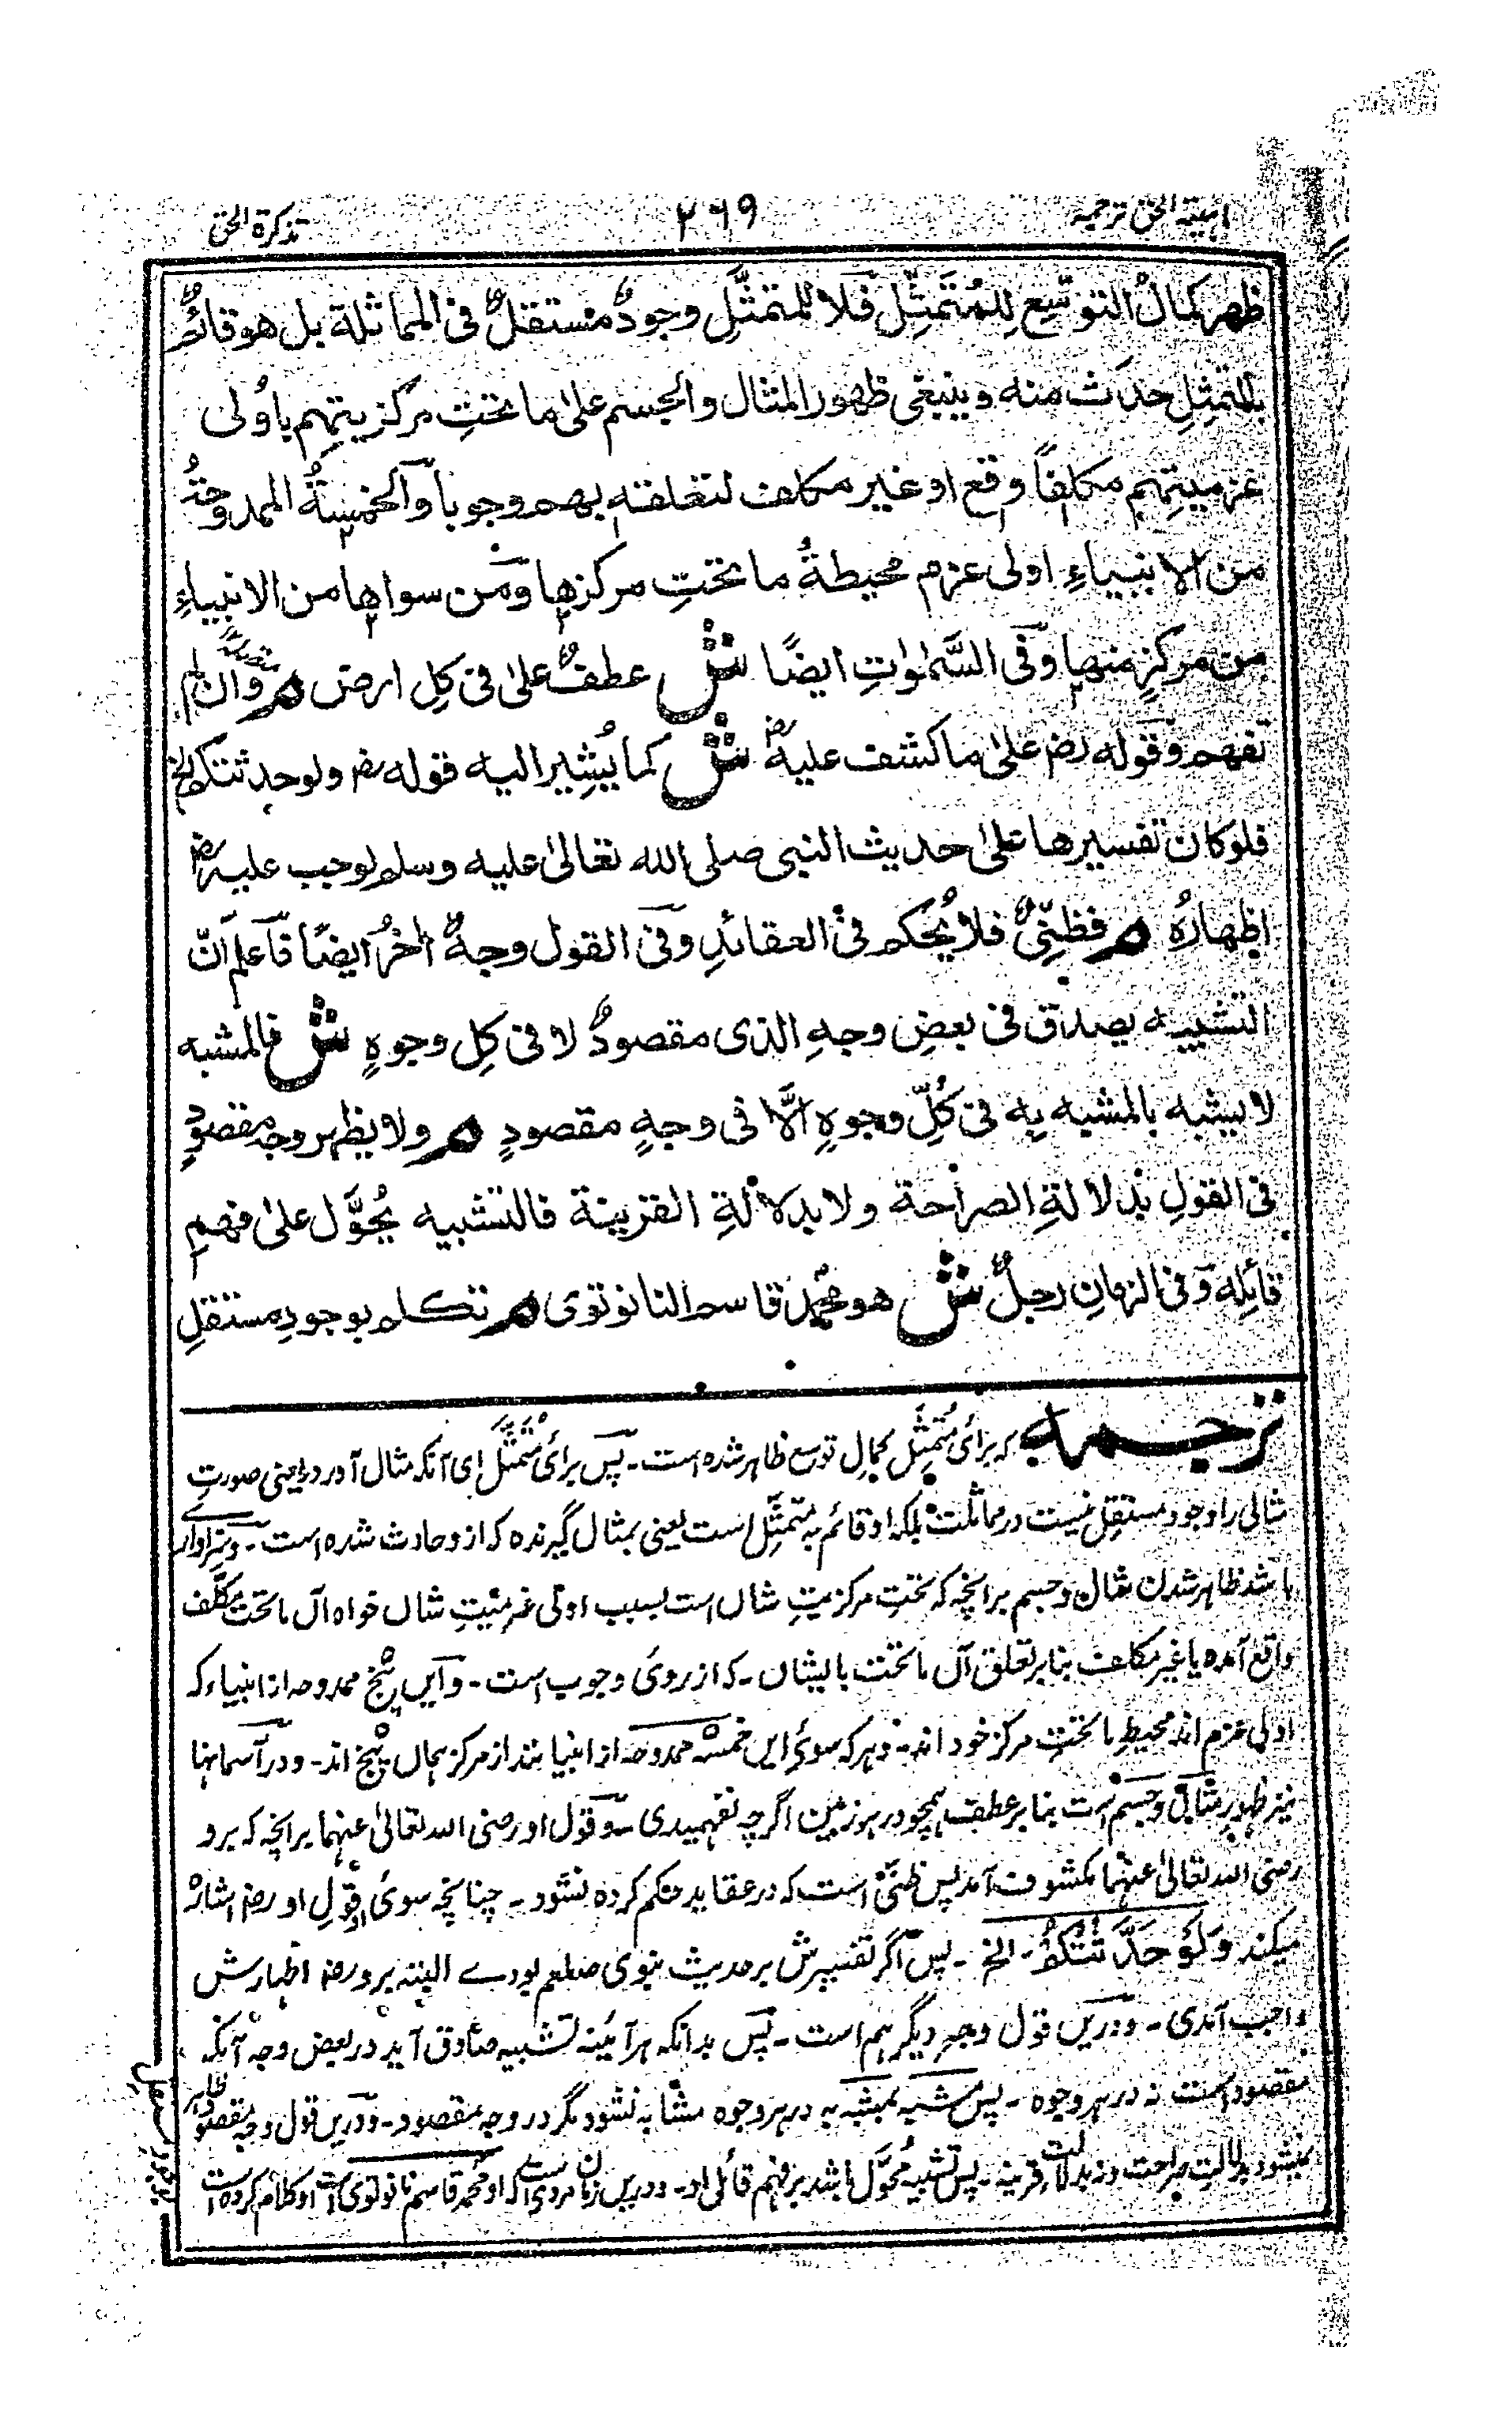 تذكرة الحق
٢٦٩
ترجمه
ظهر كمالُ التوسّعِ لِلمُتَمَثِّلِ فَلا للمتمثَّلِ وجودٌ مستقلٌ فى المماثلة بل هو قائمٌ
بالمتمثِّلِ حدث منه وينبغى ظهور المثال والجسم علىٰ ما تحتِ مركزيتِهم باُولى
عزميتِهم مكلفًا وقع او غير مكلف لتعلقه بهم وجوبا وَالخمسةُ الممدوحةُ
من الانبياءِ اولى عزم محيطةُ ما تحتِ مركزها وَمَن سواها من الانبياءِ
من مركزٍ منها وَفى السَّمٰوٰتِ ايضًا ش عطفٌ علىٰ فى كلِ ارض م وَان لم
تفهم وَقوله رض علىٰ ما كشف عليه رض ش كما يُشِير اليه قوله رض ولو حدثتكم الخ
فلو كان تفسيرها علىٰ حديث النبى صلى الله تعالىٰ عليه وسلم لوجب عليه رض
اظهارُه م فظنِّىٌ فلا يُحكم فى العقائدِ وَفى القول وجهٌ اٰخرُ ايضًا فَاعلم اَنّ
التشبيه يصدق فى بعضِ وجهِ الذى مقصودٌ لا فى كلِ وجوهٍ ش فالمشبه
لا يشبه بالمشبه بِه فى كُلِّ وجوهٍ الَّا فى وجهٍ مقصودٍ م ولا يظهر وجه مقصودٍ
فى القولِ بدلالةِ الصراحة ولا بدلالةِ القرينة فالتشبيه يُحَوَّل علىٰ فهمِ
قائِله وَفى الزمانِ رجلٌ ش هو محمد قاسم النانوتوى م تكلم بوجودِ مستقلِ
ترجمه كه برائ مُتَمثِّل كمالِ توسع ظاهر شده است ـ پس برائ مُتَمَثَّل اى آنكه مثال آورد يعنى صورتِ
مثالى را وجود مستقل نيست در مماثلت بلكه او قائم به متمثِّل است يعنى بمثال گيرنده كه ازو حادث شده است ـ وسزاوار
باشد ظاهر شدن مثال وجسم برانچه كه تحتِ مركزيتِ شان است بسبب اولى عزميتِ شان خواه آن ماتحت مكلَّف
واقع آمده يا غير مكلف بنابر تعلق آن ماتحت بايشان ـ كه از روى وجوب است ـ وَاين پنج ممدوحه از انبياء كه
اولى عزم اند محيطِ ماتحتِ مركز خود اند ـ وهركه سوئ اين خمسه ممدوحه از انبيا اند از مركز همان پنج اند ـ ودر آسمانها
نيز ظهورِ مثال وجسم است بنا بر عطف همچو در هر زمين اگرچه نفهميدى ـ وَقول او رضى الله تعالىٰ عنهما برانچه كه برو
رضى الله تعالىٰ عنهما مكشوف آمد پس ظنى است كه در عقايد حكم كرده نشود ـ چنانچه سوئ او قولِ او رض اشاره
ميكند وَلَوْ حَدَّثْتُكُمْ ـ الخ ـ پس اگر تفسيرش بر حديث نبوى صلعم بودے البته برو رض اظهارش
واجب آمدى ـ ودرين قول وجهِ ديگر هم است ـ پَس بدانكه هر آئينه تشبيه صادق آيد در بعض وجه آنكه
مقصود است نه در هر وجوه ـ پس مشبه بمشبه به در هر وجوه مشابه نشود مگر در وجه مقصود ـ ودرين قول وجه مقصود ظاهر
نميشود بدلالتِ صراحت ونه بدلالت قرينه ـ پس تشبيه مُحوَّل باشد بر فهم قائل او ـ ودرين زمان مردى است كه او محمد قاسم نانوتوى است او كلام كرده است
بوجودِ مستقل